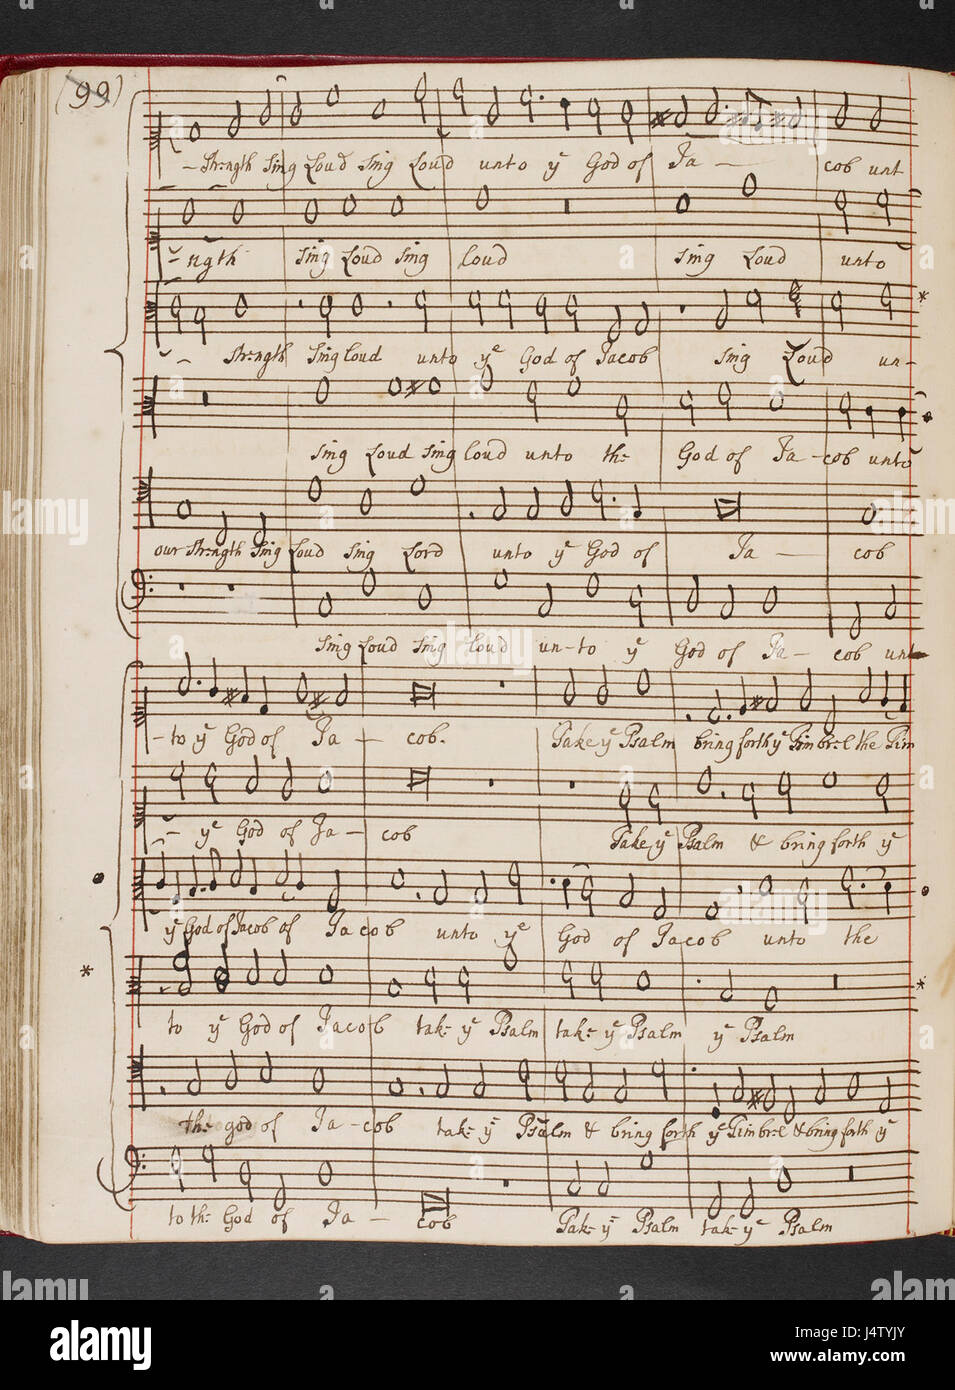 (99)
- strength sing Loud sing Loud unto ye God of Ja — cob unt
- ngth sing Loud sing loud sing Loud unto
- strength sing loud unto ye God of Jacob sing Loud un-
sing Loud sing loud unto the God of Ja - cob unto
our strength sing Loud sing Lord unto ye God of Ja — cob
sing Loud sing loud un-to ye God of Ja - cob unt
- to ye God of Ja — cob. Take ye Psalm bring forth ye Timbrel the Tim
- ye God of Ja - cob Take ye Psalm & bring forth ye
ye God of Jacob of Jacob unto ye God of Jacob unto the
to ye God of Jacob take ye Psalm take ye Psalm ye Psalm
the god of Ja - cob take ye Psalm & bring forth ye Timbrel & bring forth ye
to the God of Ja — cob Take ye Psalm take ye Psalm
alamy
Image ID: J4TYJY
www.alamy.com